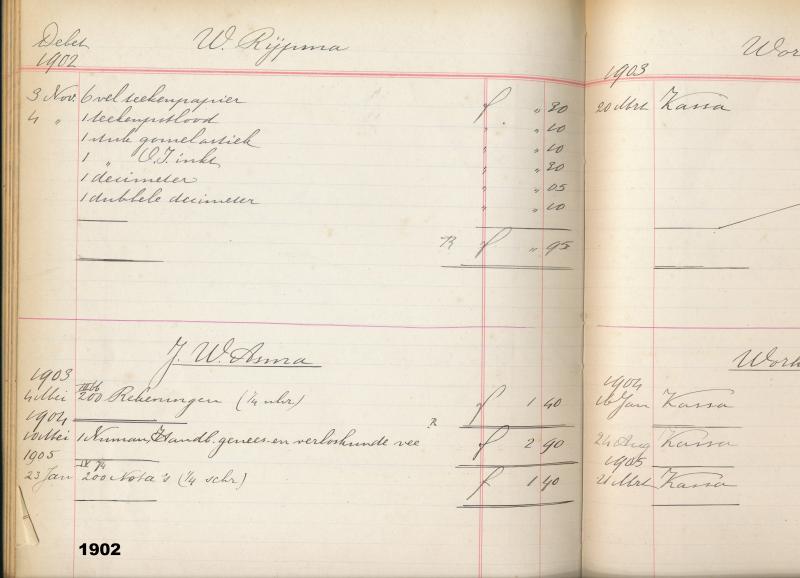 Debet W. Rijpma
1902
3 Nov. 6 vel teekenpapier f " 30
4 " 1 teekenpotlood " " 10
1 stuk gomelastiek " " 10
1 " O.I. inkt " " 20
1 decimeter " " 05
1 dubbele decimeter " " 10
R f " 95
J. W. Asma
1903
4 Mei 200 Rekeningen (1/4 vhr) f 1 40
1904 R
10 Mei 1 Numan, Handb. genees- en verloskunde vee f 2 90
1905
23 Jan 200 Nota's (1/4 schr) f 1 40
1902
Wor
1903
20 Mrt Kassa
Word
1904
16 Jan Kassa
24 Aug Kassa
1905
21 Mrt Kassa